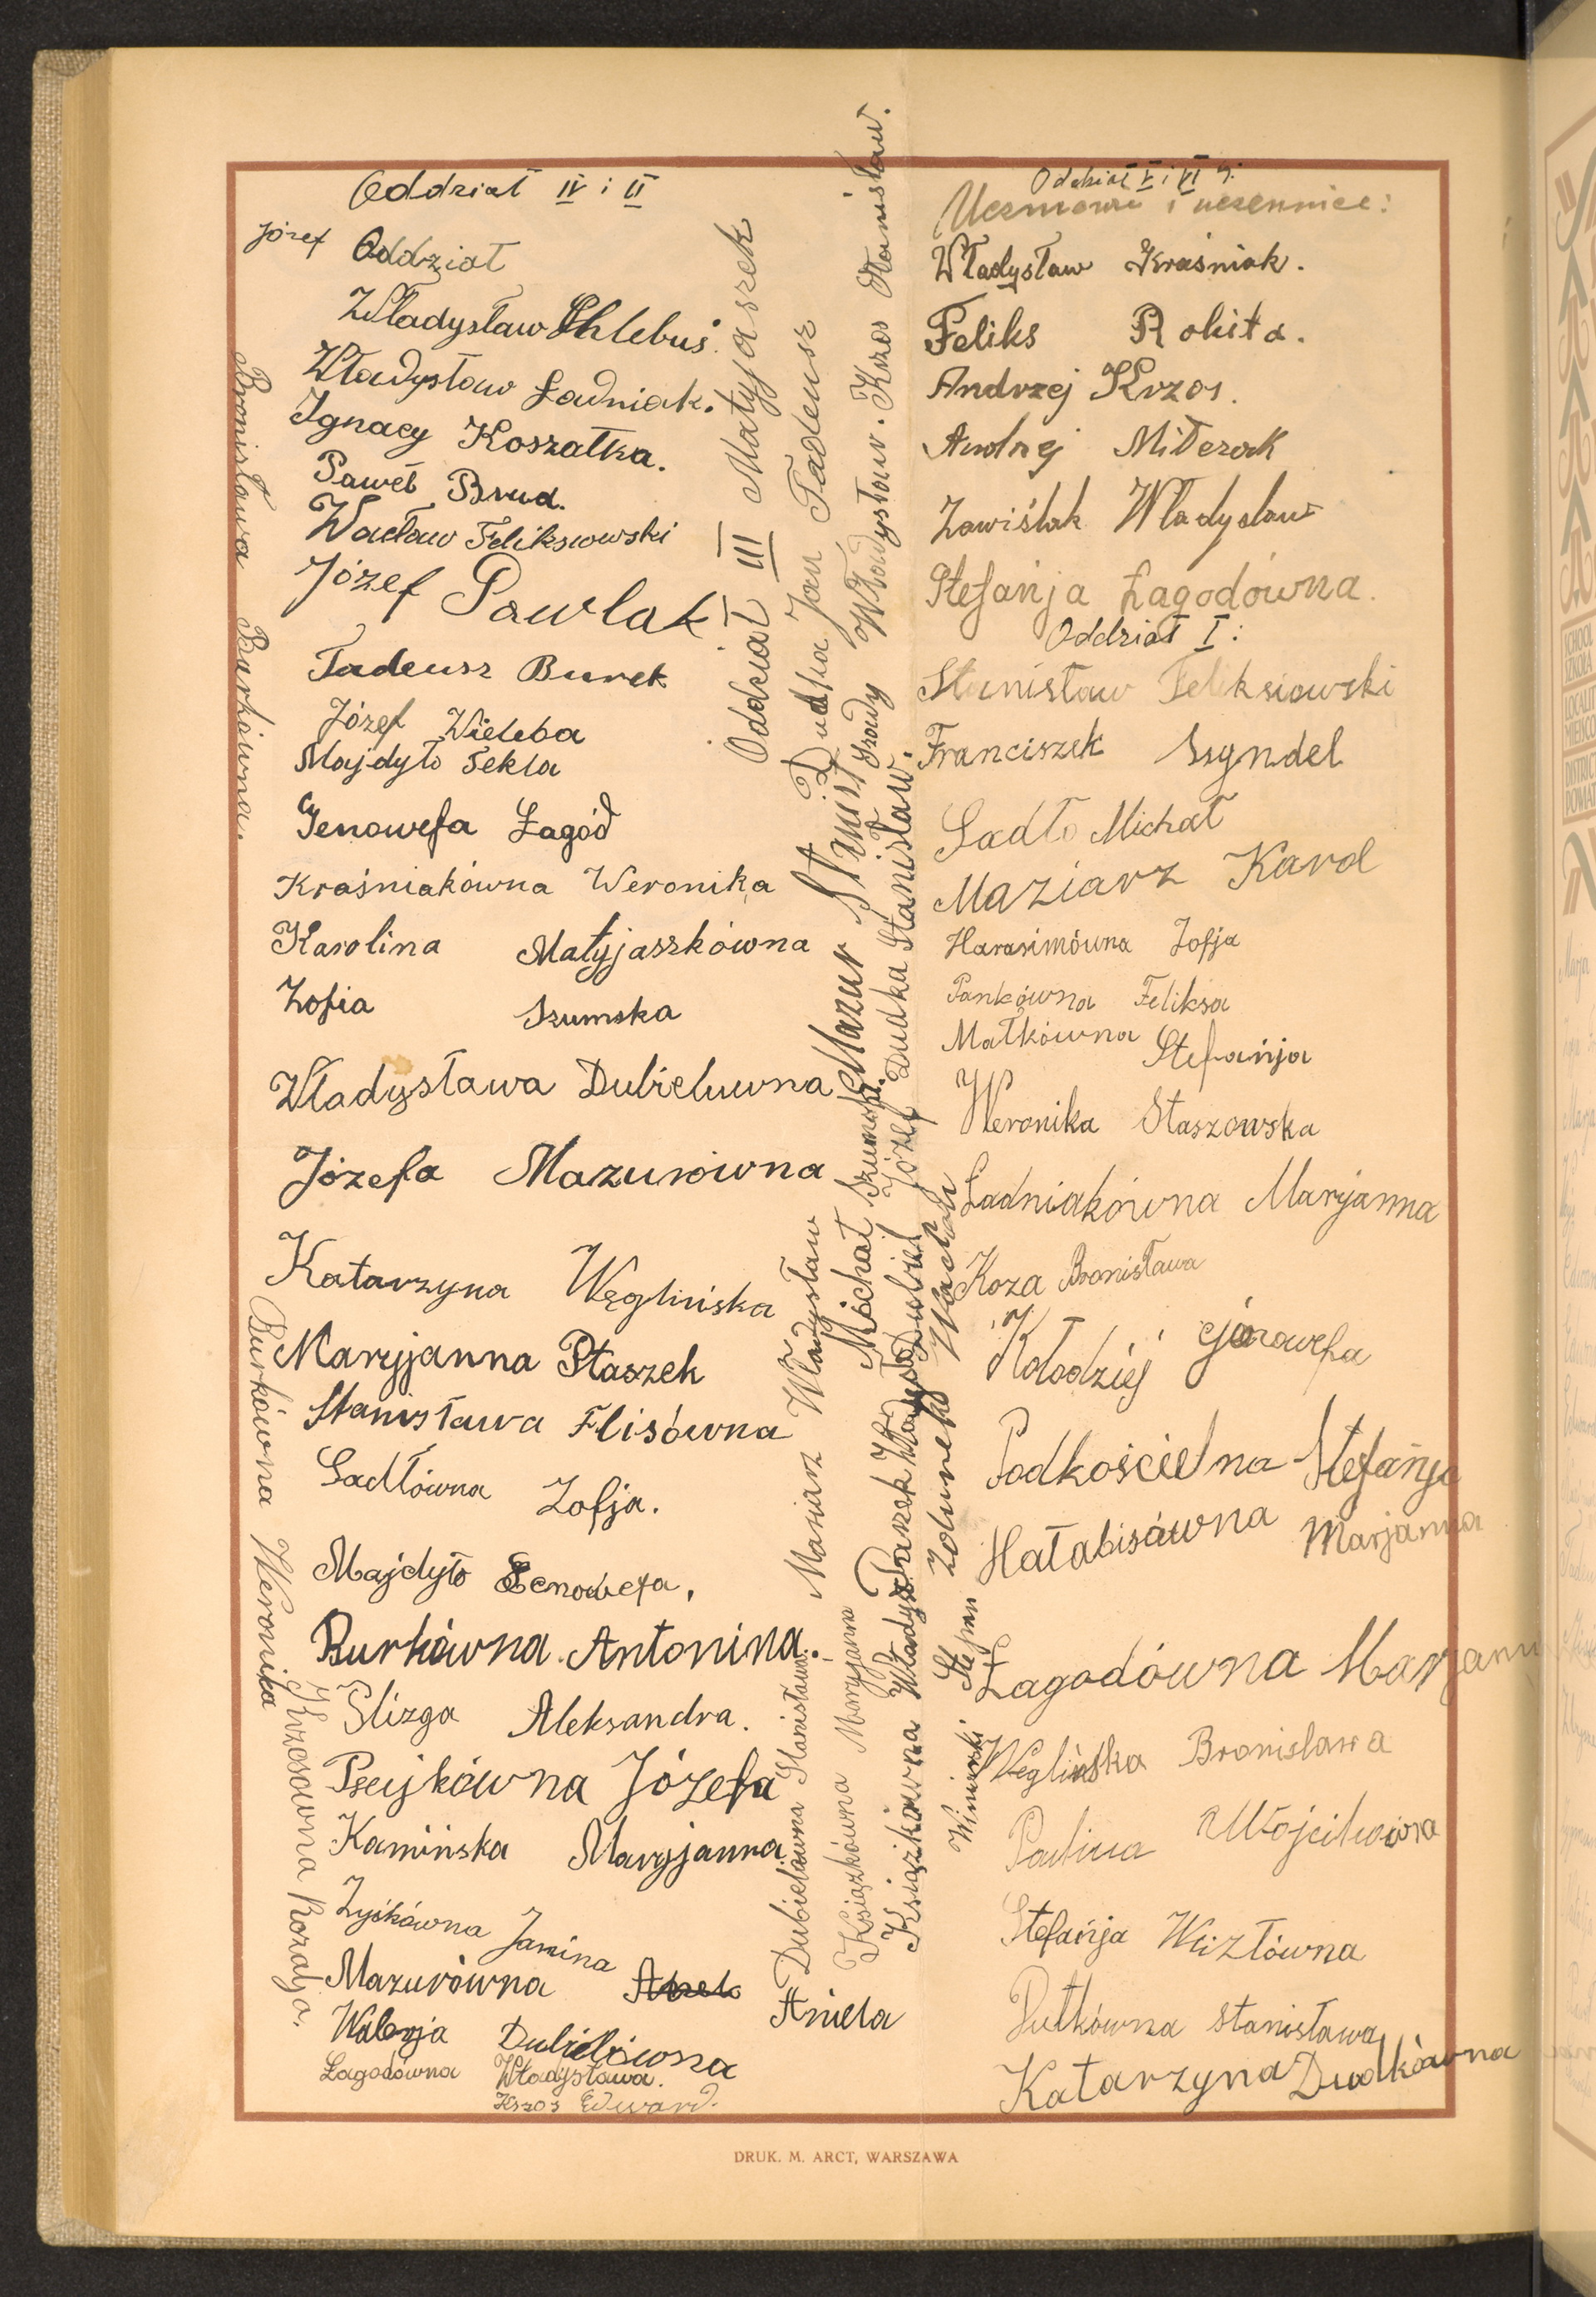 Oddział IV i II
Józef Oddział
Władysław Chlebuś.
Władysław Ładniak.
Ignacy Koszałka.
Paweł Brud.
Wacław Feliksowski
Józef Pawlak
Tadeusz Burek
Józef Wieleba
Majdyło Tekla
Genowefa Łagód
Kraśniakówna Weronika
Karolina Matyjaszkówna
Zofia Szumska
Władysława Dubieluwna
Józefa Mazurówna
Katarzyna Węglińska
Maryjanna Ptaszek
Stanisława Flisówna
Sadłówna Zofja.
Majdyło Genowefa,
Burkówna Antonina.
Ślizga Aleksandra.
Psejkówna Józefa
Kamińska Maryjanna
Zyśkówna Janina
Mazurówna Aniela
Walerja Dubielówna
Łagodówna Władysława.
Kszos Edward.
Bronisława Burkówna.
Burkówna Weronika
Krzosówna Rozalja.
Oddział III Matyjaszek
Dudka Jan Tadeusz
Mazur Stanisł
Władysław. Krzos Stanisław.
Józef Dudka Stanisław.
Maziarz Władysław
Michał Szumski.
Dubielówna Stanisława
Książkówna Maryjanna
Książkówna Władysł
Winiarski Stefan
Oddział V i VI
Uczniowie i uczennice:
Władysław Kraśniak.
Feliks Rokita.
Andrzej Krzos.
Andrzej Mitczak
Zawiślak Władysław
Stefanja Łagodówna.
Oddział I:
Stanisław Feliksiowski
Franciszek Szyndel
Sadło Michał
Maziarz Karol
Harasimówna Zofja
Pankówna Feliksa
Małkówna Stefańja
Weronika Staszowska
Ładniakówna Maryjanna
Koza Bronisława
Kołodziej Gienowefa
Podkościelna Stefańja
Hałabisówna Marjanna
Łagodówna Marjanna
Węglińska Bronisława
Paulina Wójcikówna
Stefańja Wizłówna
Dutkówna Stanisława
Katarzyna Dudkówna
DRUK. M. ARCT, WARSZAWA